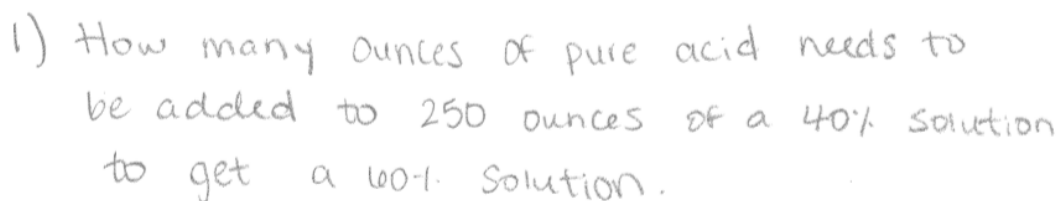 1) How many ounces of pure acid needs to
be added to 250 ounces of a 40% solution
to get a 60% solution.